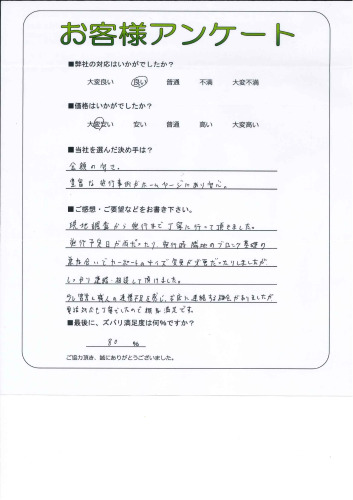 お客様アンケート
■弊社の対応はいかがでしたか？
大変良い 良い 普通 不満 大変不満
■価格はいかがでしたか？
大変安い 安い 普通 高い 大変高い
■当社を選んだ決め手は？
金額の安さ、
豊富な施行事例がホームページにあり安心。
■ご感想・ご要望などをお書き下さい。
現地調査から施行まで丁寧に行って頂きました。
施行予定日が雨だったり、施行時隣地のブロック基礎の
具合いでカーポートのサイズ変更が必要だったりしましたが
しっかり連絡・相談して頂けました。
少し営業と職人の連携不足を感じ、お店に連絡する場合がありましたが
電話対応も丁寧でしたので概ね満足です。
■最後に、ズバリ満足度は何％ですか？
80 ％
ご協力頂き、誠にありがとうございました。